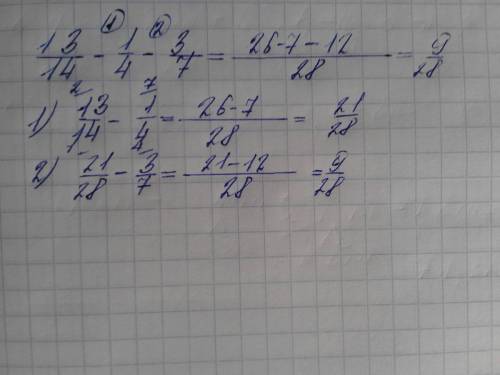 ① ②
13/14 - 1/4 - 3/7 = (26-7-12)/28 = 9/28
1) 13/14 ² - 1/4 ⁷ = (26-7)/28 = 21/28
2) 21/28 - 3/7 = (21-12)/28 = 9/28